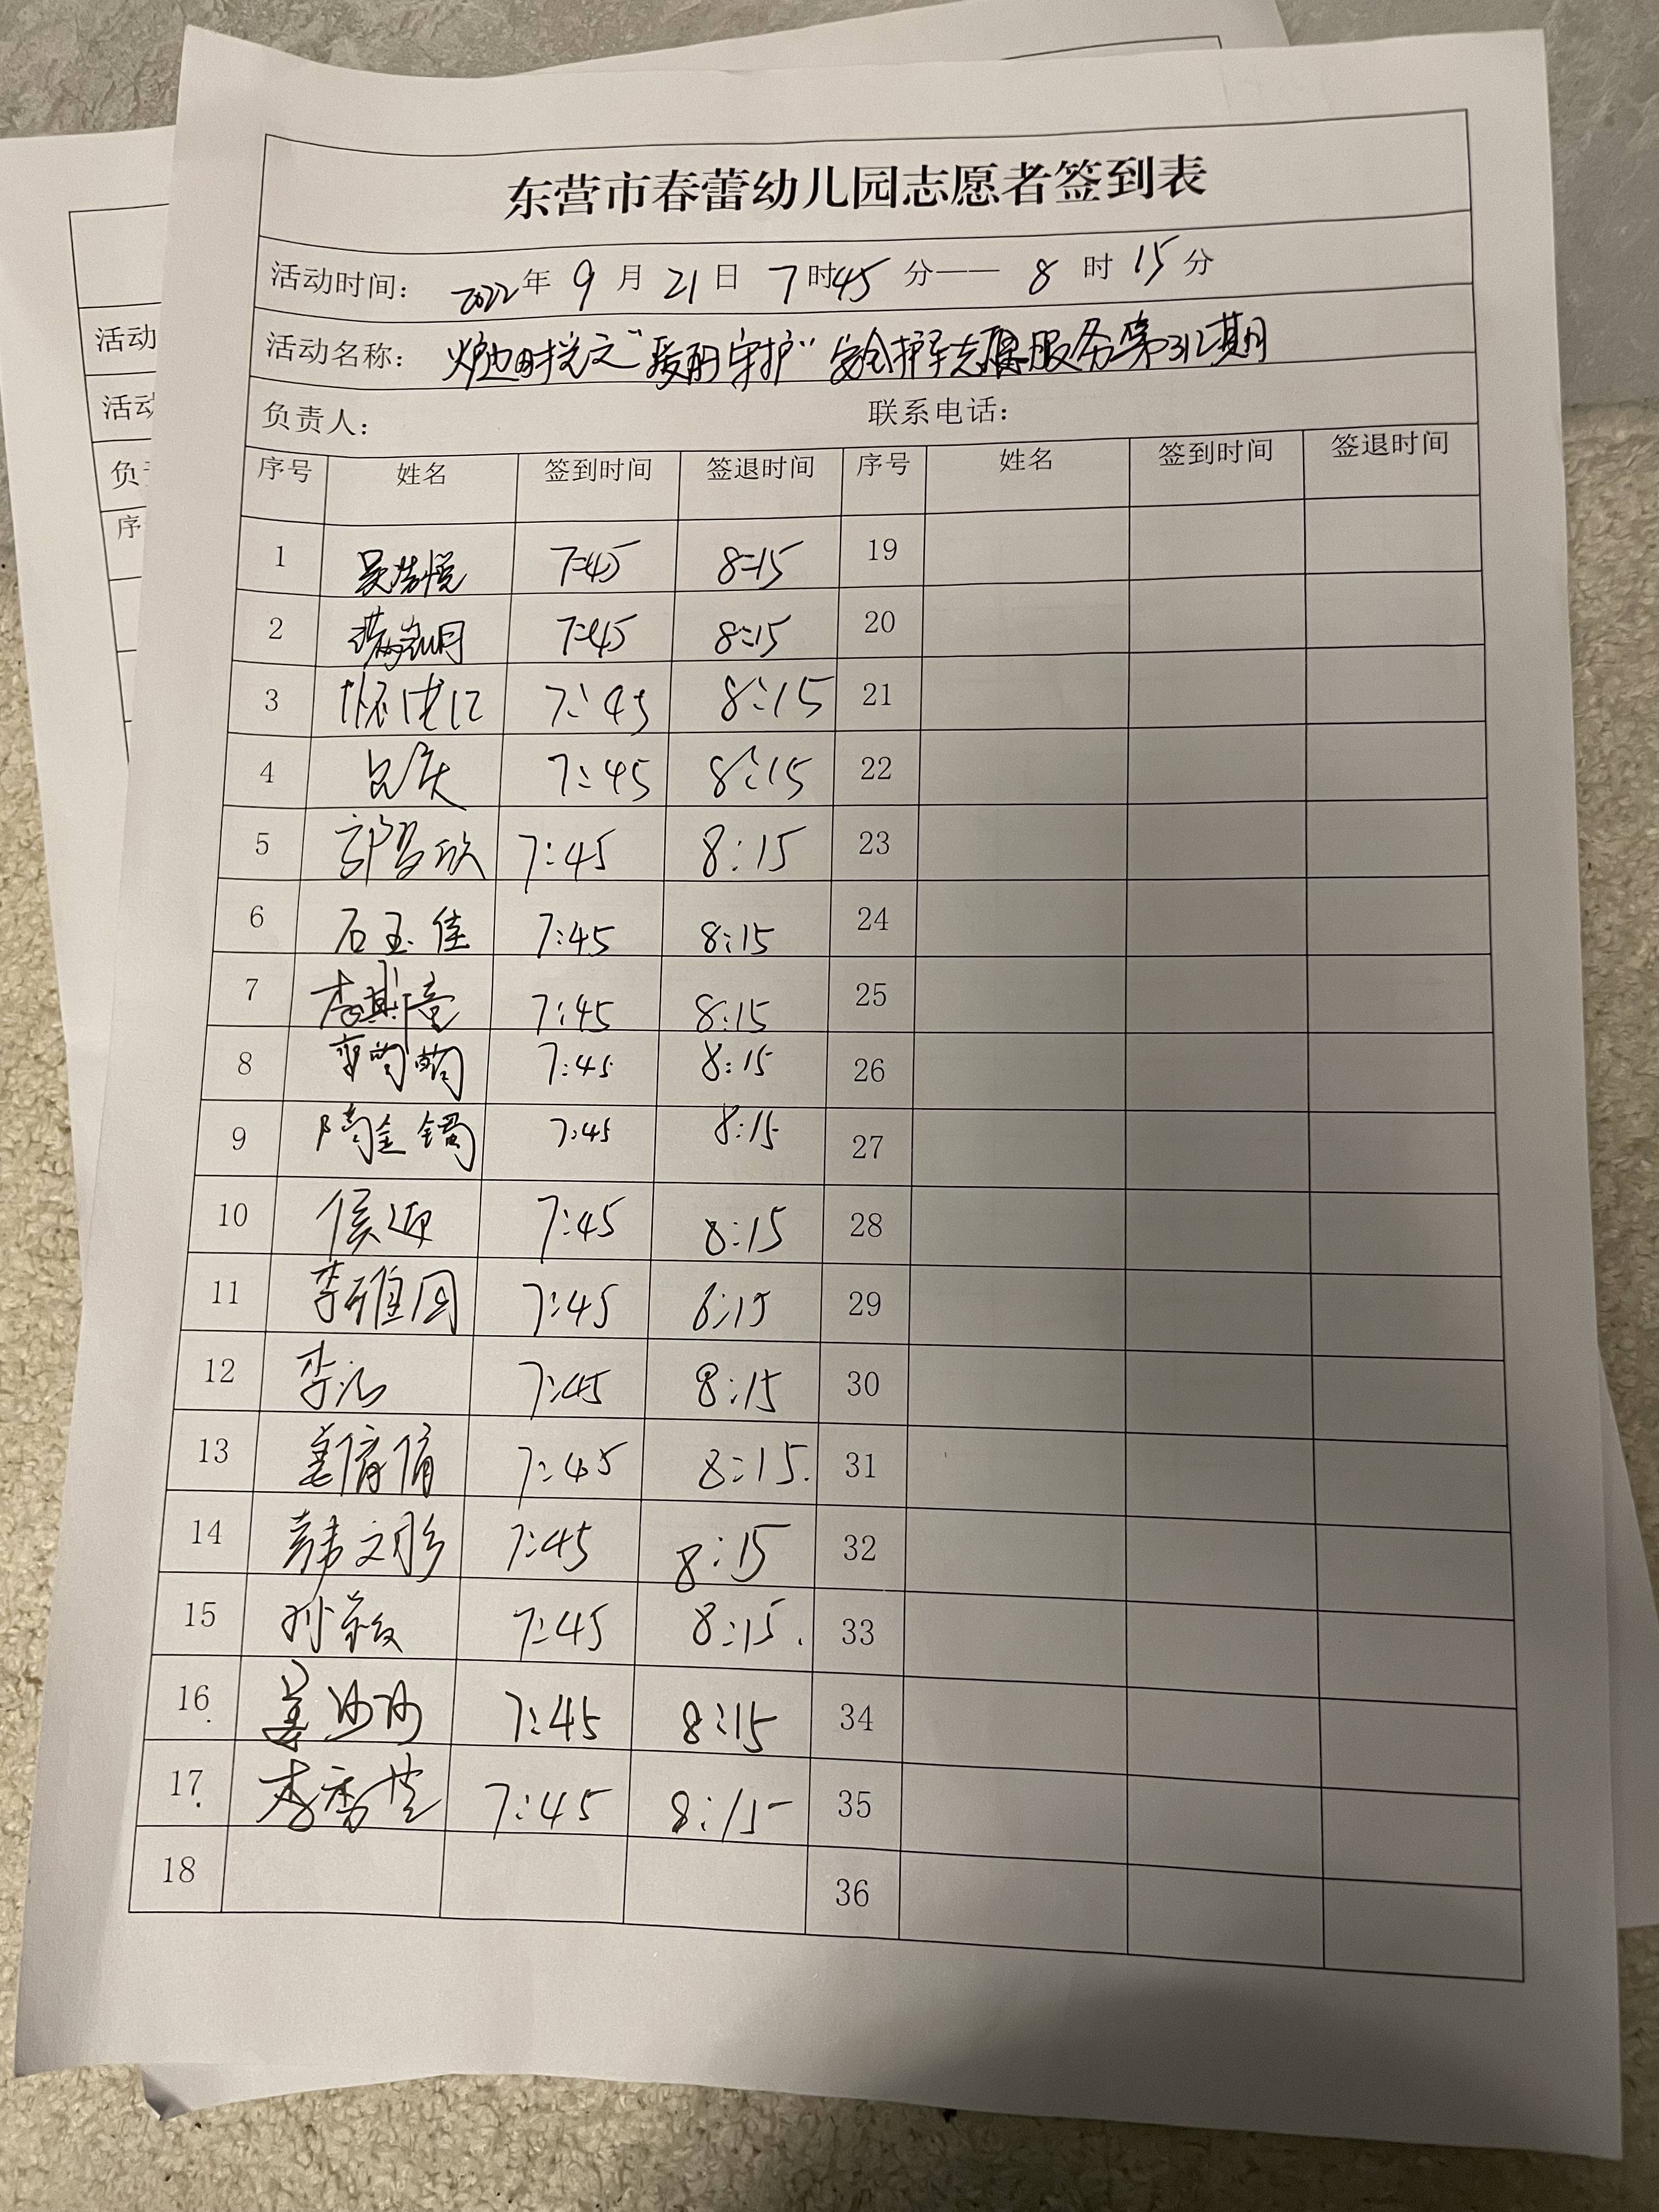 东营市春蕾幼儿园志愿者签到表
活动时间： 2022年 9月 21日 7时45分—— 8时15分
活动名称： 炉边时光之“爱的守护”安全护学志愿服务第312期
负责人： 联系电话：
序号 姓名 签到时间 签退时间 序号 姓名 签到时间 签退时间
1 吴浩悦 7:45 8:15 19
2 7:45 8:15 20
3 7:45 8:15 21
4 吕庆 7:45 8:15 22
5 7:45 8:15 23
6 石玉佳 7:45 8:15 24
7 李斯琦 7:45 8:15 25
8 7:45 8:15 26
9 隋金镯 7:45 8:15 27
10 侯迎 7:45 8:15 28
11 李雅囡 7:45 8:15 29
12 李 7:45 8:15 30
13 姜倩倩 7:45 8:15. 31
14 韩文彤 7:45 8:15 32
15 孙 7:45 8:15. 33
16 姜沙沙 7:45 8:15 34
17. 李秀芝 7:45 8:15 35
18 36
活动
活动
负责
序